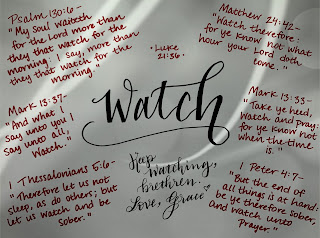 Psalm 130:6-
"My Soul waiteth
for the Lord more than
they that watch for the
morning: I say, more than
they that watch for the
morning."
• Luke
21:36 •
Matthew 24:42-
"Watch therefore:
for ye know not what
hour your Lord doth
come."
Watch
Mark 13:37-
"And what I
say unto you I
say unto all,
Watch."
Mark 13:33-
"Take ye heed,
watch and pray:
for ye know not
when the time
is."
1 Thessalonians 5:6-
"Therefore let us not
sleep, as do others; but
let us watch and be
sober."
Keep
Watching,
brethren.
Love, Grace
1 Peter 4:7-
"But the end of
all things is at hand:
be ye therefore sober,
and watch unto
Prayer."